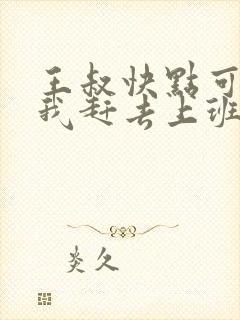 王叔快點可
我赶去上班
炎久